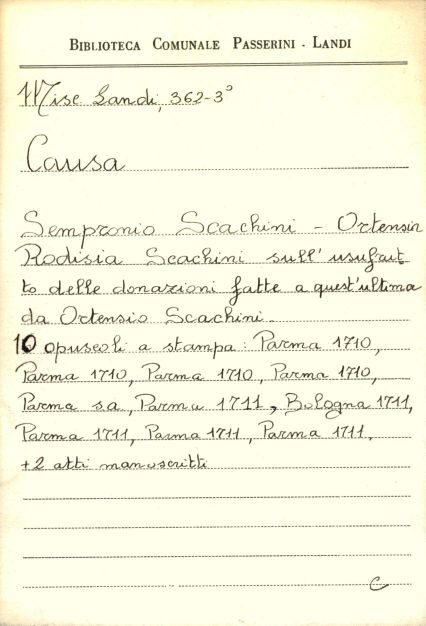 BIBLIOTECA COMUNALE PASSERINI - LANDI
Misc Landi, 362-3°
Causa
Sempronio Scachini - Ortensia
Rodisia Scachini sull'usufrut
to delle donazioni fatte a quest'ultima
da Ortensio Scachini.
10 opuscoli a stampa: Parma 1710,
Parma 1710, Parma 1710, Parma 1710,
Parma sa, Parma 1711, Bologna 1711,
Parma 1711, Parma 1711, Parma 1711.
+2 atti manoscritti
C